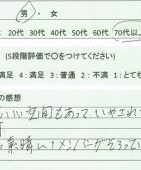 男・女
20代 30代 40代 50代 60代 70代以
(5段階評価で○をつけてください)
満足 4:満足 3:普通 2:不満 1:とても
の感想
いい空間もあって いやされ
素晴しいメンバーがそろってい